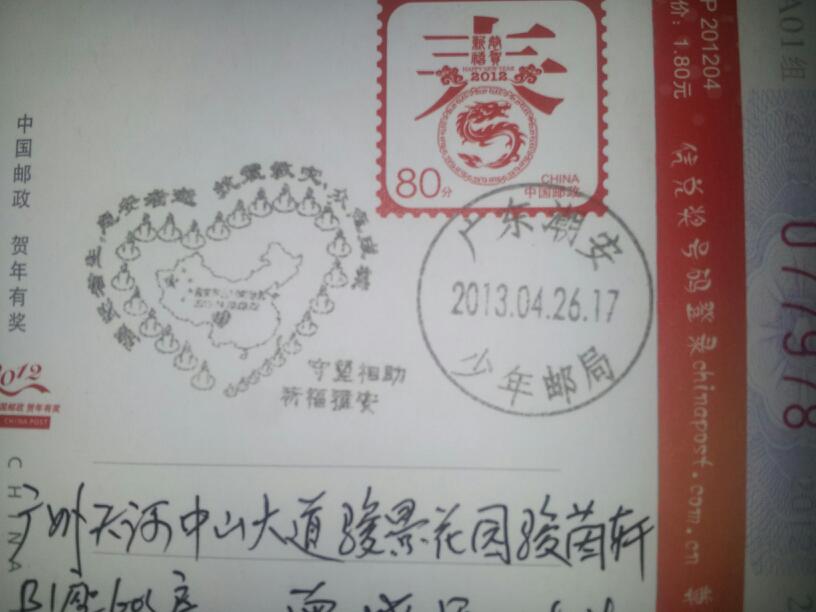 中国邮政 贺年有奖
2012
中国邮政 贺年有奖
CHINA POST
CHINA
春
恭贺
新禧
HAPPY NEW YEAR
2012
80分
CHINA
中国邮政
抗震救灾
守望相助
祈福雅安
广东潮安
2013.04.26.17
少年邮局
广州天河中山大道骏景花园骏茵轩
P 201204
价：1.80元
信兑奖号码登录chinapost.com.cn
A01组
077978
2012